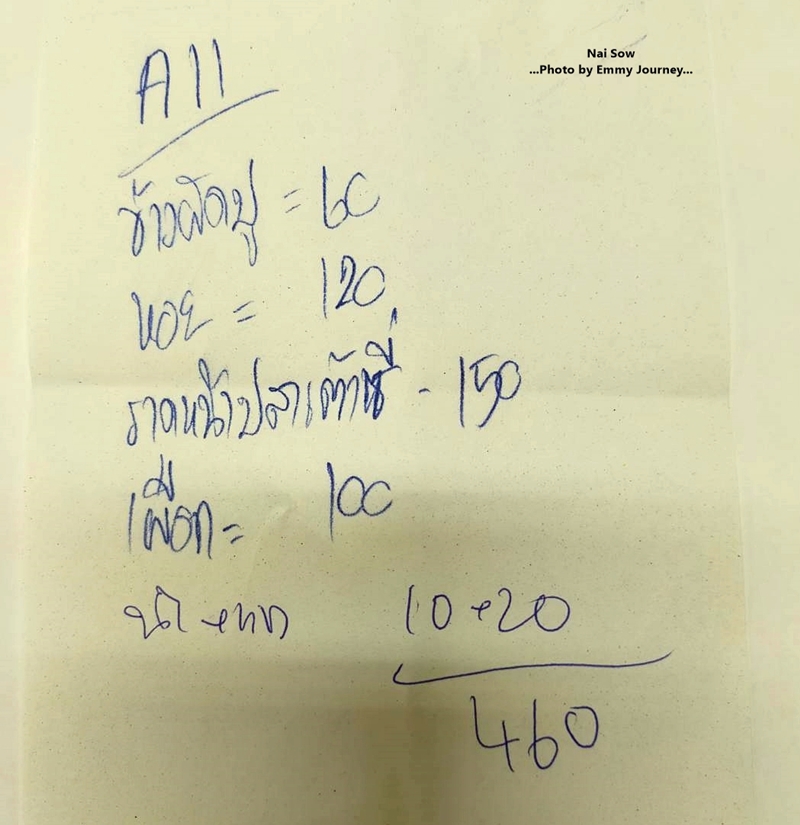 Nai Sow
...Photo by Emmy Journey...
A11
ข้าวผัดปู = 60
หอย = 120
ราดหน้าปลาเต้าซี่ - 150
เผือก = 100
น้ำ + 10 + 20
460